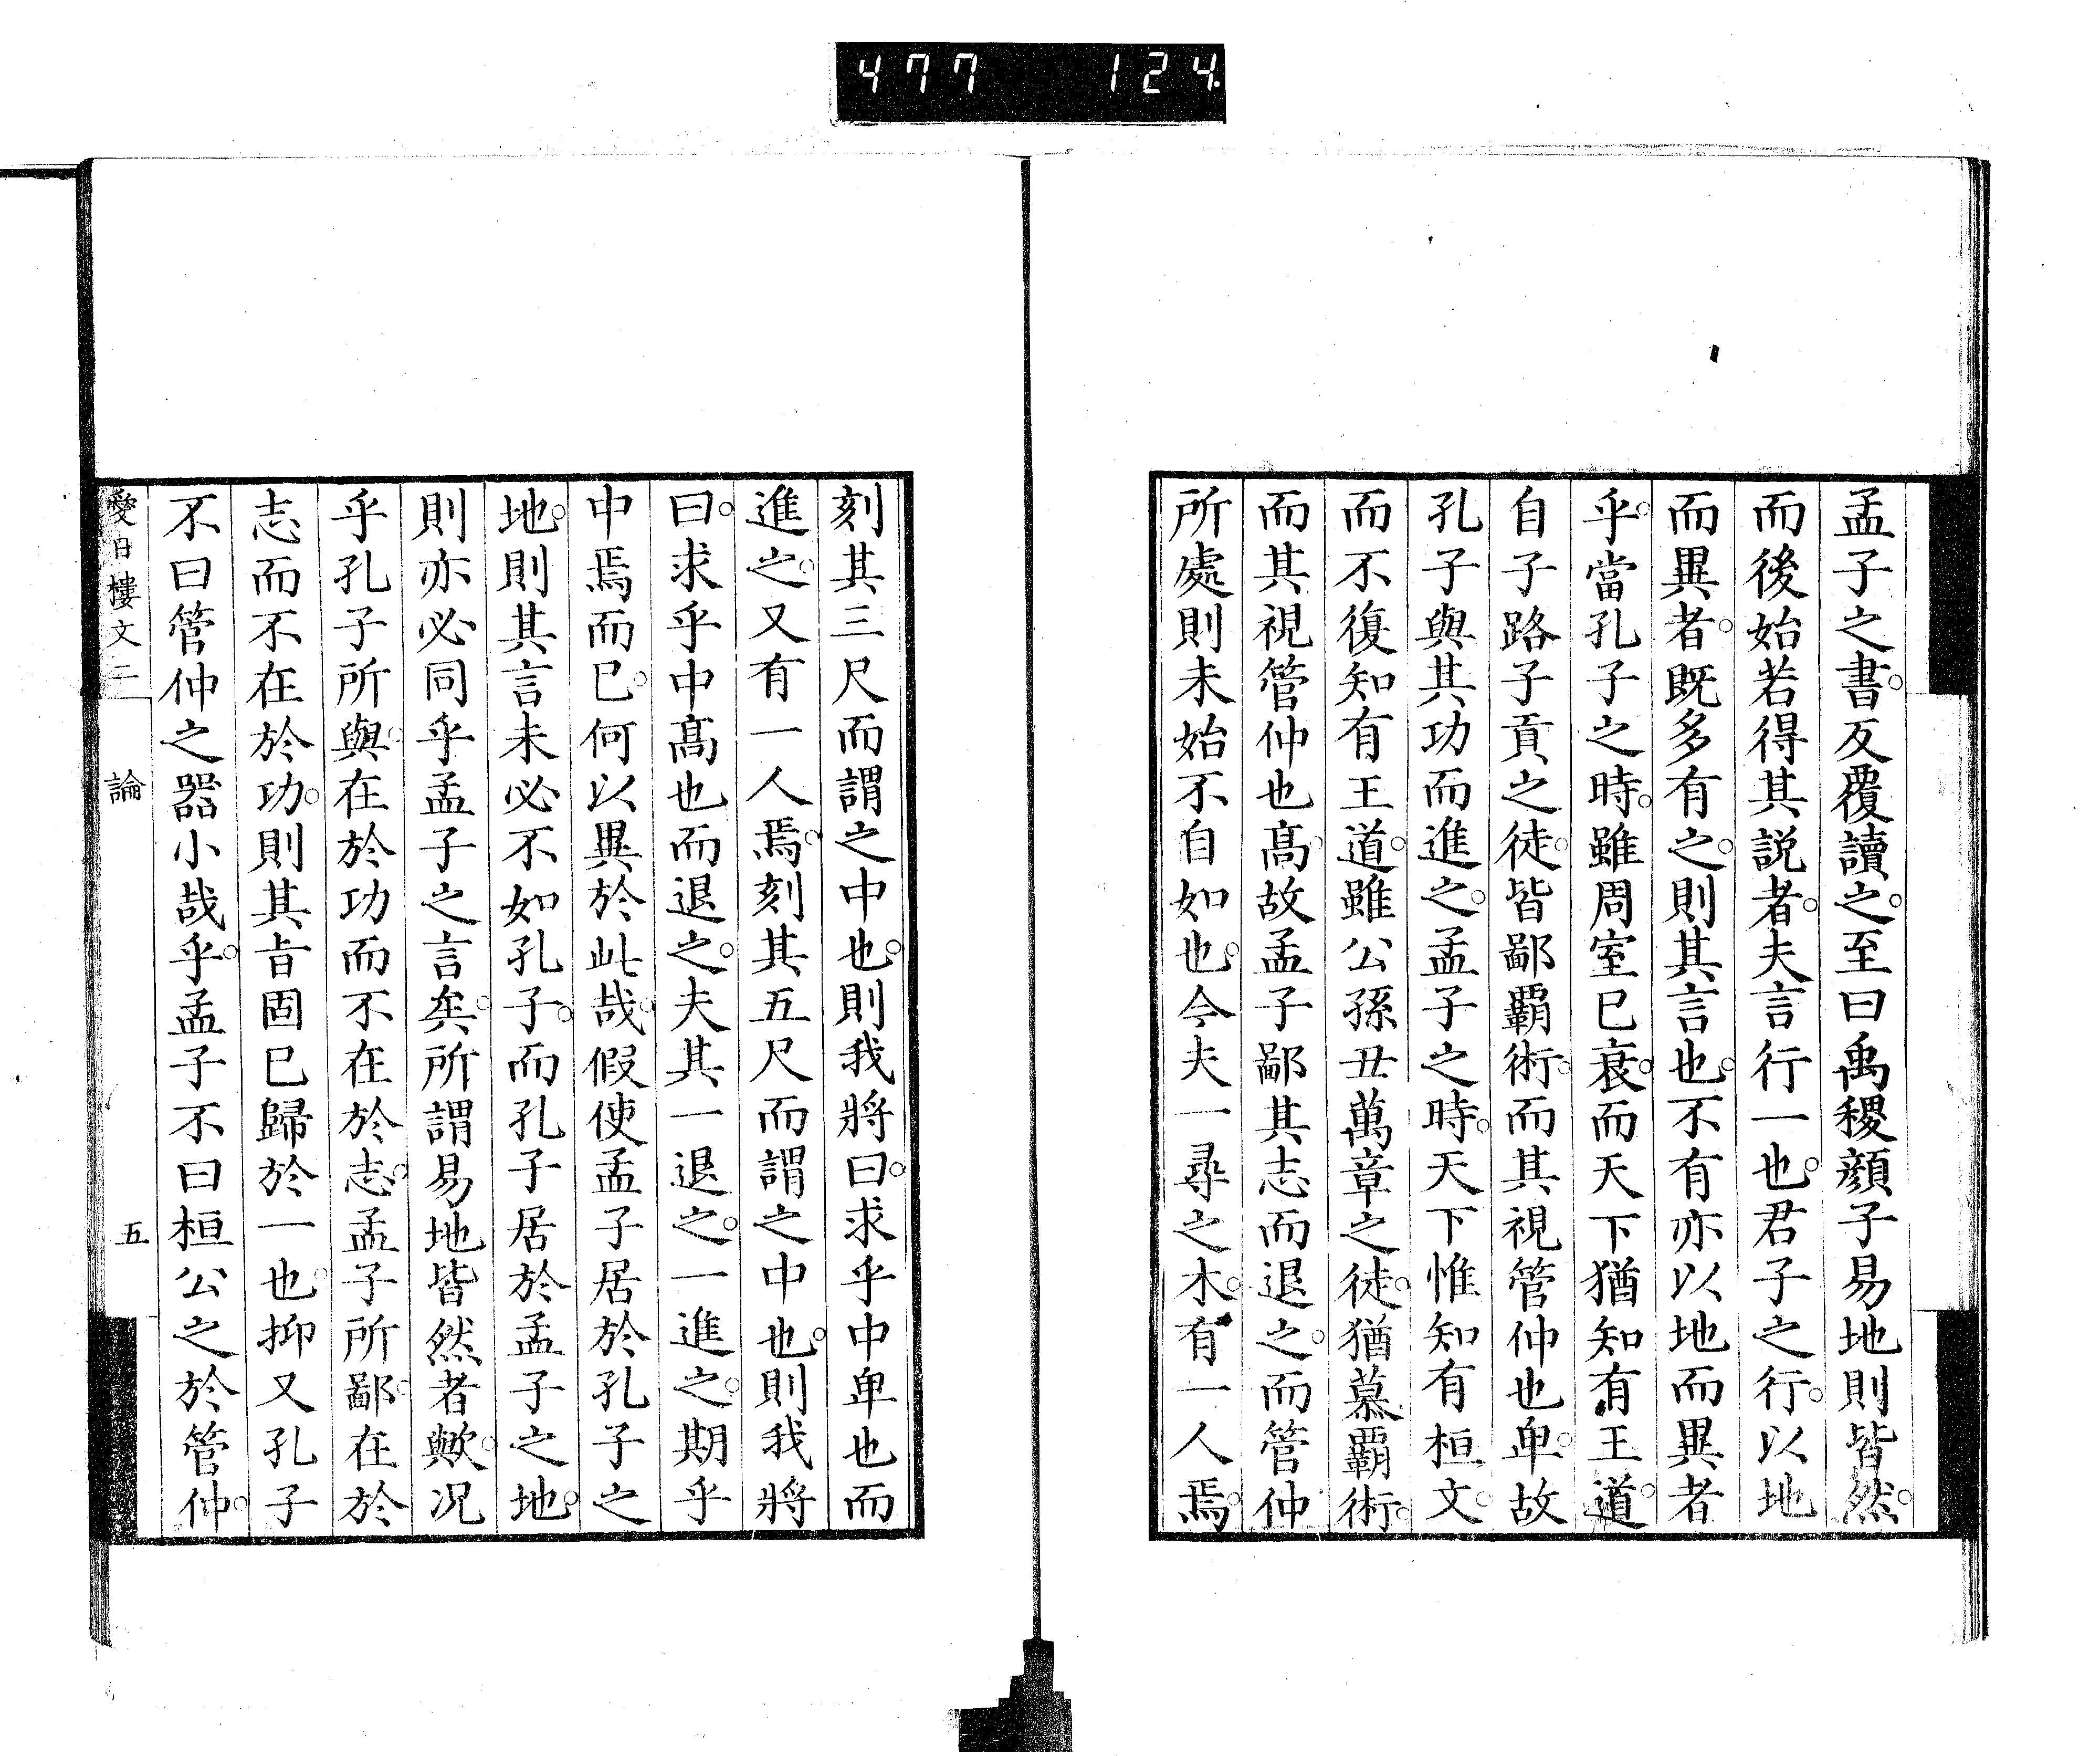 477 124
孟子之書。反覆讀之。至曰禹稷顏子易地則皆然。
而後始若得其説者。夫言行一也。君子之行。以地
而異者。既多有之。則其言也。不有亦以地而異者
乎。當孔子之時。雖周室已衰。而天下猶知有王道。
自子路子貢之徒。皆鄙覇術。而其視管仲也卑。故
孔子與其功而進之。孟子之時。天下惟知有桓文。
而不復知有王道。雖公孫丑萬章之徒。猶慕覇術。
而其視管仲也高。故孟子鄙其志而退之。而管仲
所處則未始不自如也。今夫一尋之木。有一人焉。
刻其三尺而謂之中也。則我將曰。求乎中卑也而
進之。又有一人焉。刻其五尺而謂之中也。則我將
曰。求乎中高也而退之。夫其一退之。一進之。期乎
中焉而已。何以異於此哉。假使孟子居於孔子之
地。則其言未必不如孔子。而孔子居於孟子之地。
則亦必同乎孟子之言矣。所謂易地皆然者歟。况
乎孔子所與。在於功而不在於志。孟子所鄙。在於
志而不在於功。則其旨固已歸於一也。抑又孔子
不曰管仲之器小哉乎。孟子不曰桓公之於管仲。
愛日樓文二 論 五